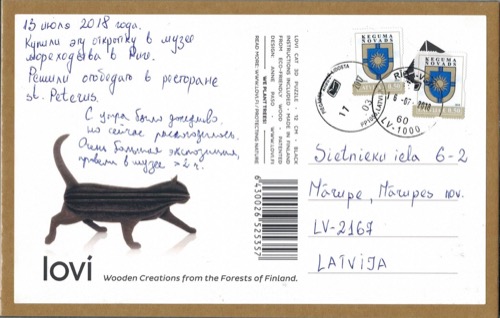 13 июля 2018 года.
Купили эту открытку в музее
мореходства в Риге.
Решили отобедать в ресторане
st. Peterus.
С утра было дождливо,
но сейчас распогодилось.
Очень большая экспозиция,
провели в музее >2 ч.
lovi
Wooden Creations from the Forests of Finland.
LOVI CAT 3D PUZZLE 12 CM - BLACK
INSTRUCTIONS INCLUDED MADE IN FINLAND
FROM ECO-FRIENDLY WOOD PATENTED
DESIGN: ANNE PASO WWW.LOVI.FI
WE PLANT TREES!
READ MORE: WWW.LOVI.FI/PROTECTING-NATURE
6430026525357
ĶEGUMA
NOVADS
ĶEGUMA
NOVADS
17 03
60
LV-1000
Sietnieku iela 6-2
Mārupe, Mārupes nov.
LV-2167
LATVIJA